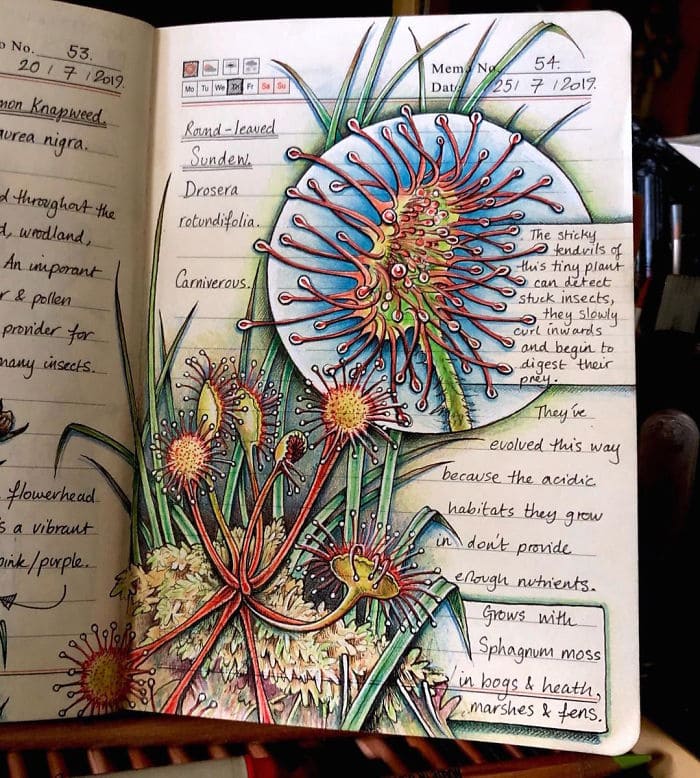 No. 53.
20/7/2019.
Knapweed.
nigra.
throughout the
woodland,
An imporant
& pollen
provider for
many insects.
flowerhead
a vibrant
pink/purple.
Memo No. 54.
Date 25/7/2019.
Mo Tu We Th Fr Sa Su
Round-leaved
Sundew.
Drosera
rotundifolia.
Carniverous.
The sticky
tendrils of
this tiny plant
can detect
stuck insects,
they slowly
curl inwards
and begin to
digest their
prey.
They've
evolved this way
because the acidic
habitats they grow
in don't provide
enough nutrients.
Grows with
Sphagnum moss
in bogs & heath,
marshes & fens.